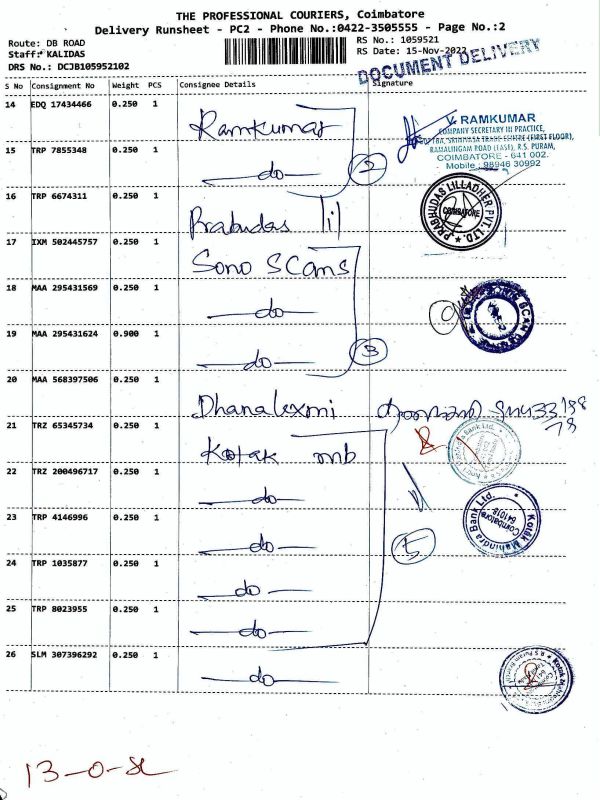 THE PROFESSIONAL COURIERS, Coimbatore
Delivery Runsheet - PC2 - Phone No.:0422-3505555 - Page No.:2
Route: DB ROAD
Staff: KALIDAS
DRS No.: DCJB105952102
RS No.: 1059521
RS Date: 15-Nov-2022
DOCUMENT DELIVERY
S No Consignment No Weight PCS Consignee Details Signature
14 EDQ 17434466 0.250 1 Ramkumar
V. RAMKUMAR
COMPANY SECRETARY IN PRACTICE,
RAMALINGAM ROAD (EAST), R.S. PURAM,
COIMBATORE - 641 002.
Mobile : 98946 30992
15 TRP 7855348 0.250 1 do
2
16 TRP 6674311 0.250 1 Prabudas lil
PRABHUDAS LILLADHER PVT. LTD.
COIMBATORE
17 IXM 502445757 0.250 1 Sono Scans
18 MAA 295431569 0.250 1 do
19 MAA 295431624 0.900 1 do
3
20 MAA 568397506 0.250 1 Dhanalexmi
21 TRZ 65345734 0.250 1 Kotak mb
22 TRZ 200496717 0.250 1 do
Kotak Mahindra Bank Ltd.
Coimbatore
641018
23 TRP 4146996 0.250 1 do
5
24 TRP 1035877 0.250 1 do
25 TRP 8023955 0.250 1 do
26 SLM 307396292 0.250 1 do
13-0-